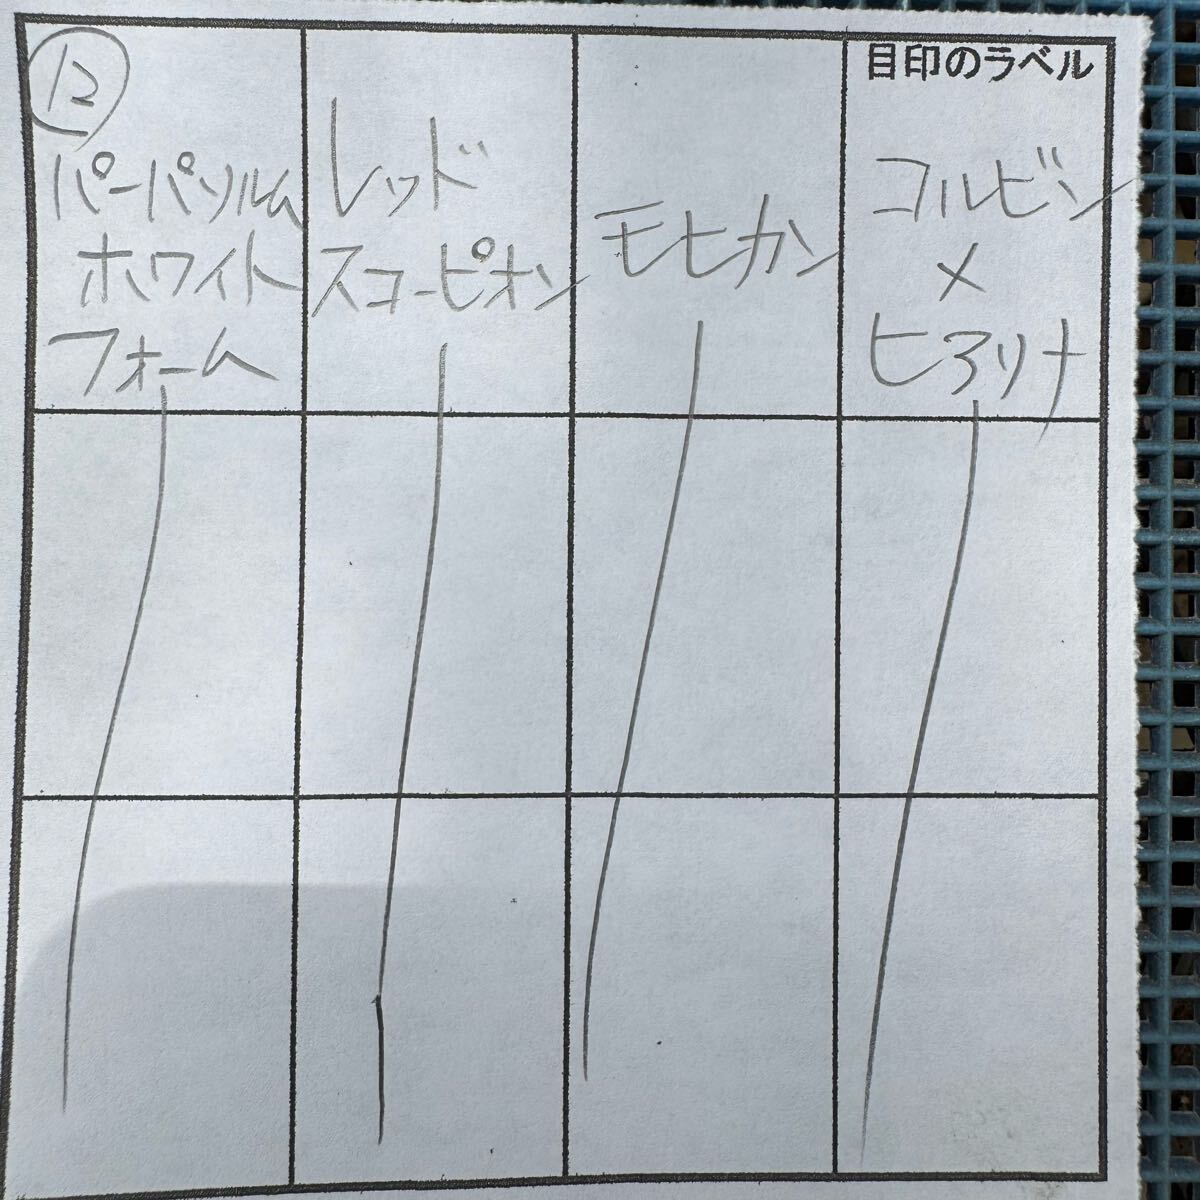 ⑫
目印のラベル
パーパソルム
ホワイト
フォーム
レッド
スコーピオン
モヒカン
コルビン
×
ヒアリナ